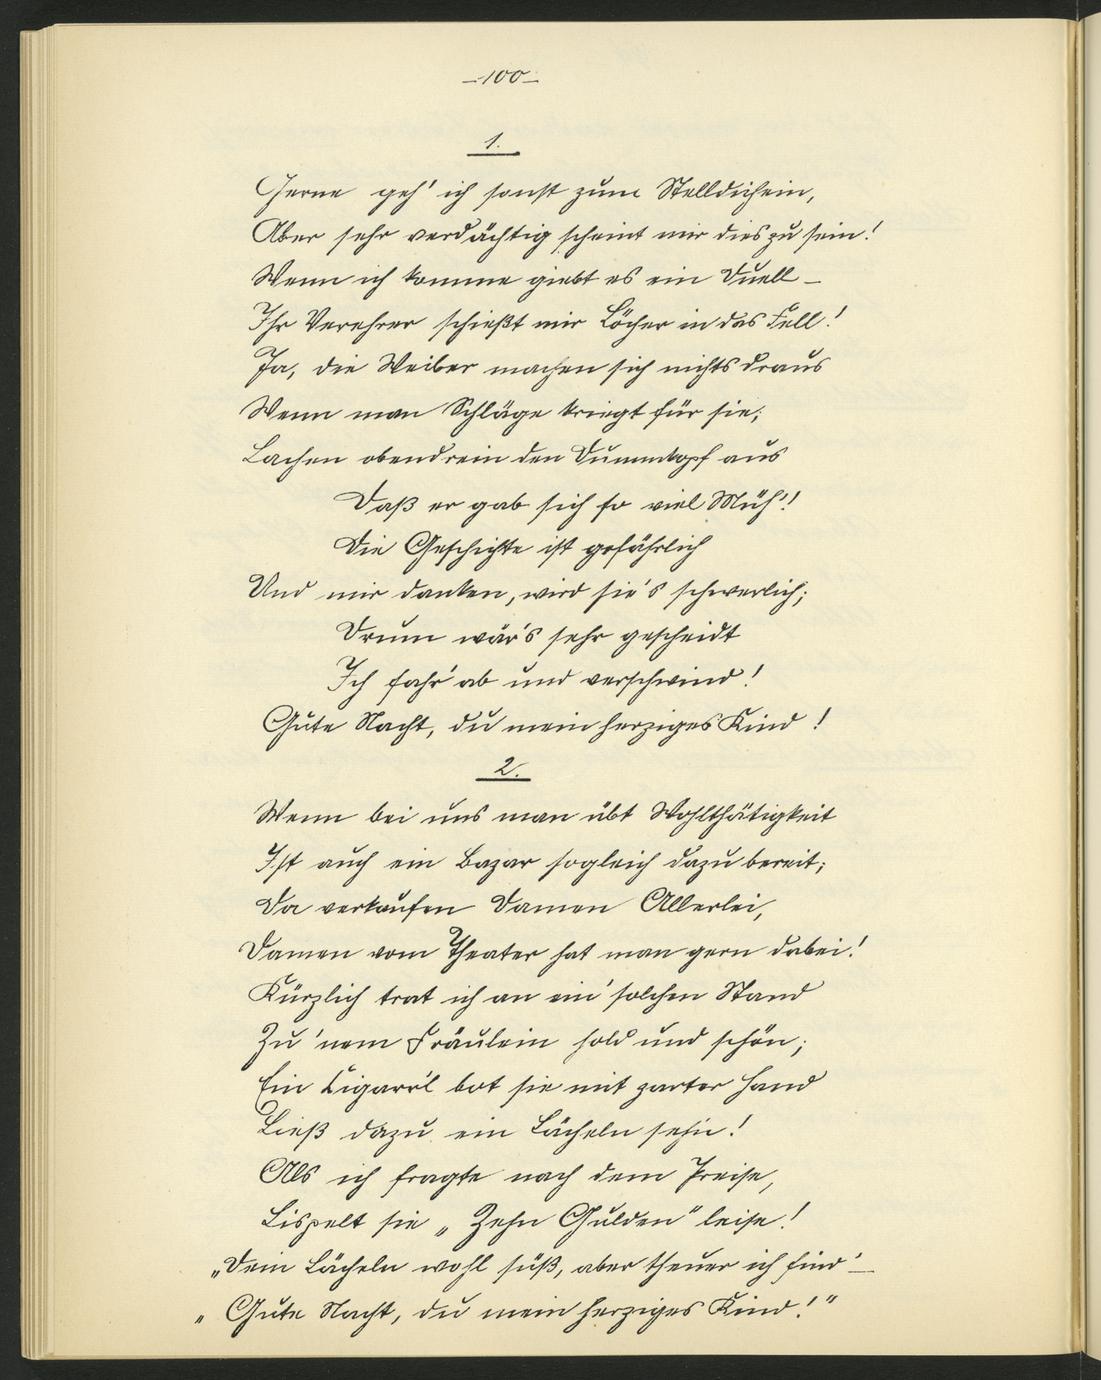 -100-
1.
Gerne geh' ich sonst zum Stelldichein,
Aber sehr verdächtig scheint mir dies zu sein!
Wenn ich komme giebt es ein Duell –
Ihr Verehrer schießt mir Löcher in das Fell!
Ja, die Weiber machen sich nichts draus
Wenn man Schläge kriegt für sie;
Lachen obendrein den Dummkopf aus
Daß er gab sich so viel Müh'!
Die Geschichte ist gefährlich
Und mir danken, wird sie's schwerlich;
Drum wär's sehr gescheidt
Ich fahr' ab und verschwind!
Gute Nacht, du mein herziges Kind!
2.
Wenn bei uns man übt Wohlthätigkeit
Ist auch ein Bazar sogleich dazu bereit;
Da verkaufen Damen Allerlei,
Damen vom Theater hat man gern dabei!
Kürzlich trat ich an ein' solchen Stand
Zu 'nem Fräulein hold und schön;
Ein Cigarr'l bot sie mit zarter Hand
Ließ dazu ein Lächeln seh'n!
Als ich fragte nach dem Preise,
Lispelt sie „Zehn Gulden" leise!
„Dein Lächeln wohl süß, aber theuer ich find' –
„Gute Nacht, du mein herziges Kind!"